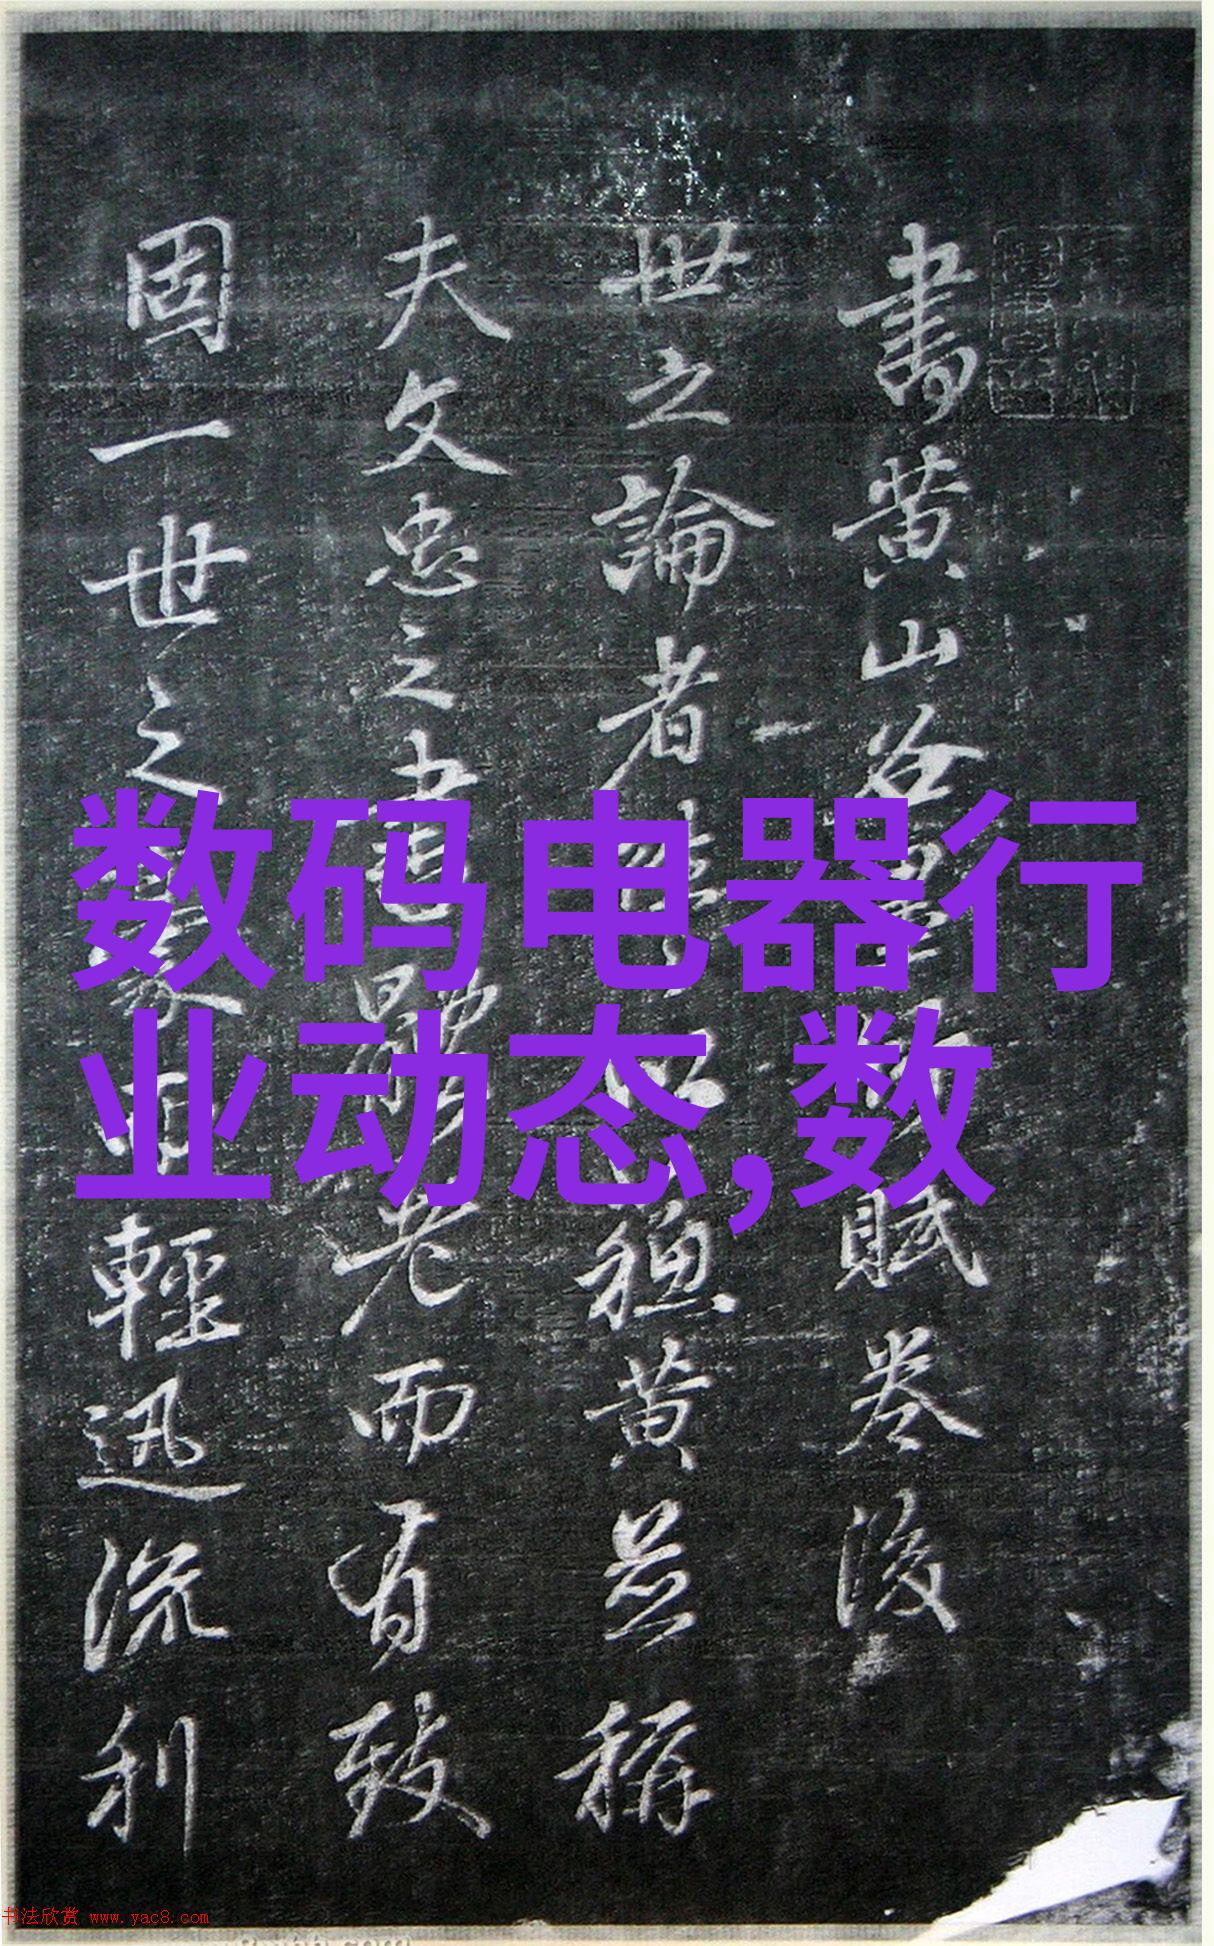 書黄山谷
賦卷後
世之論者
穩黄並稱
夫文忠之書
老而有致
固一世之
輕迅流利
数码电器行
业动态,数
书法欣赏 www.yac8.com